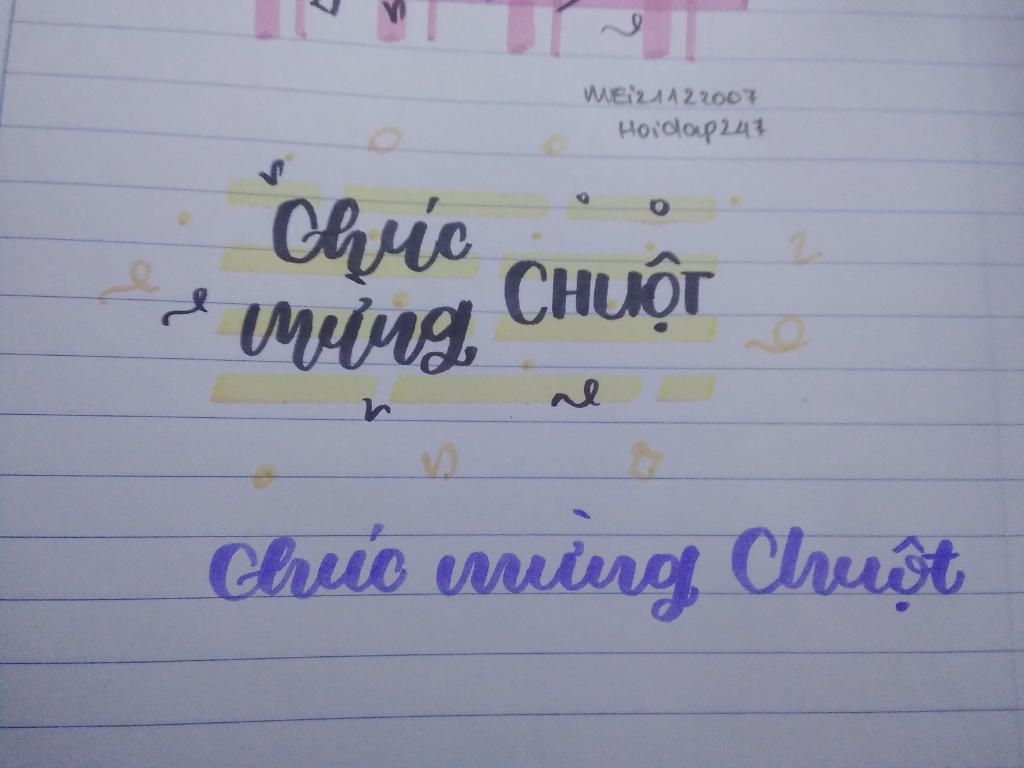 MEi21122007
Hoidap247
Chúc
mừng CHUỘT
Chúc mừng Chuột